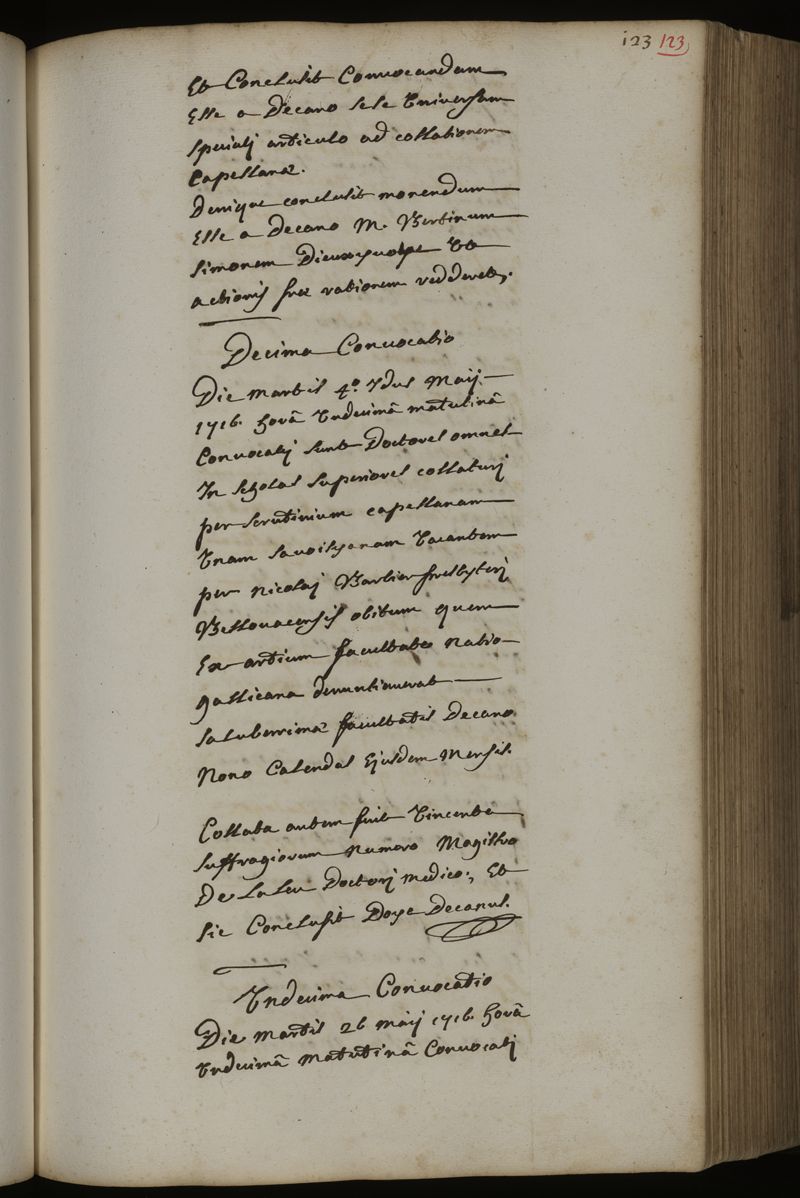 123 123
Et Conclusit Convocandam
Esse a Decano sese Universam
speciali articulo ad collationem
Capellanæ.
Denique conclusit monendum
Esse a Decano M. Bertinum
simonem Dieuxyvoye Ut
actionis suæ rationem redderet.
Decima Convocatio
Die martis 4º. Idus Maij
1716. horâ Undecimâ matutinâ
Convocatj sunt Doctores omnes
In scholas superiores collaturj
per scrutinium capellanam
Unam savoisyanam Vacantem
per Nicolaj Barbier presbyterj
Bellovacensis obitum quem
Ex artium facultate natio
gallicana denuntiaverat
saluberrimæ facultatis Decano
Nono Calendas Ejusdem Mensis.
Collata autem fuit Vincente
suffragiorum Numero Magistro
De Laleu Doctorj medico, Et
sic Conclusit Doye Decanus.
Undecima Convocatio
Die martis 26 maij 1716. horâ
Undecimâ matutinâ Convocatj